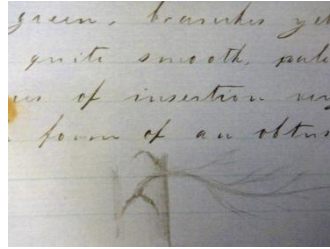 green, branches yel
quite smooth, pale
es of insertion very
form of an obtus